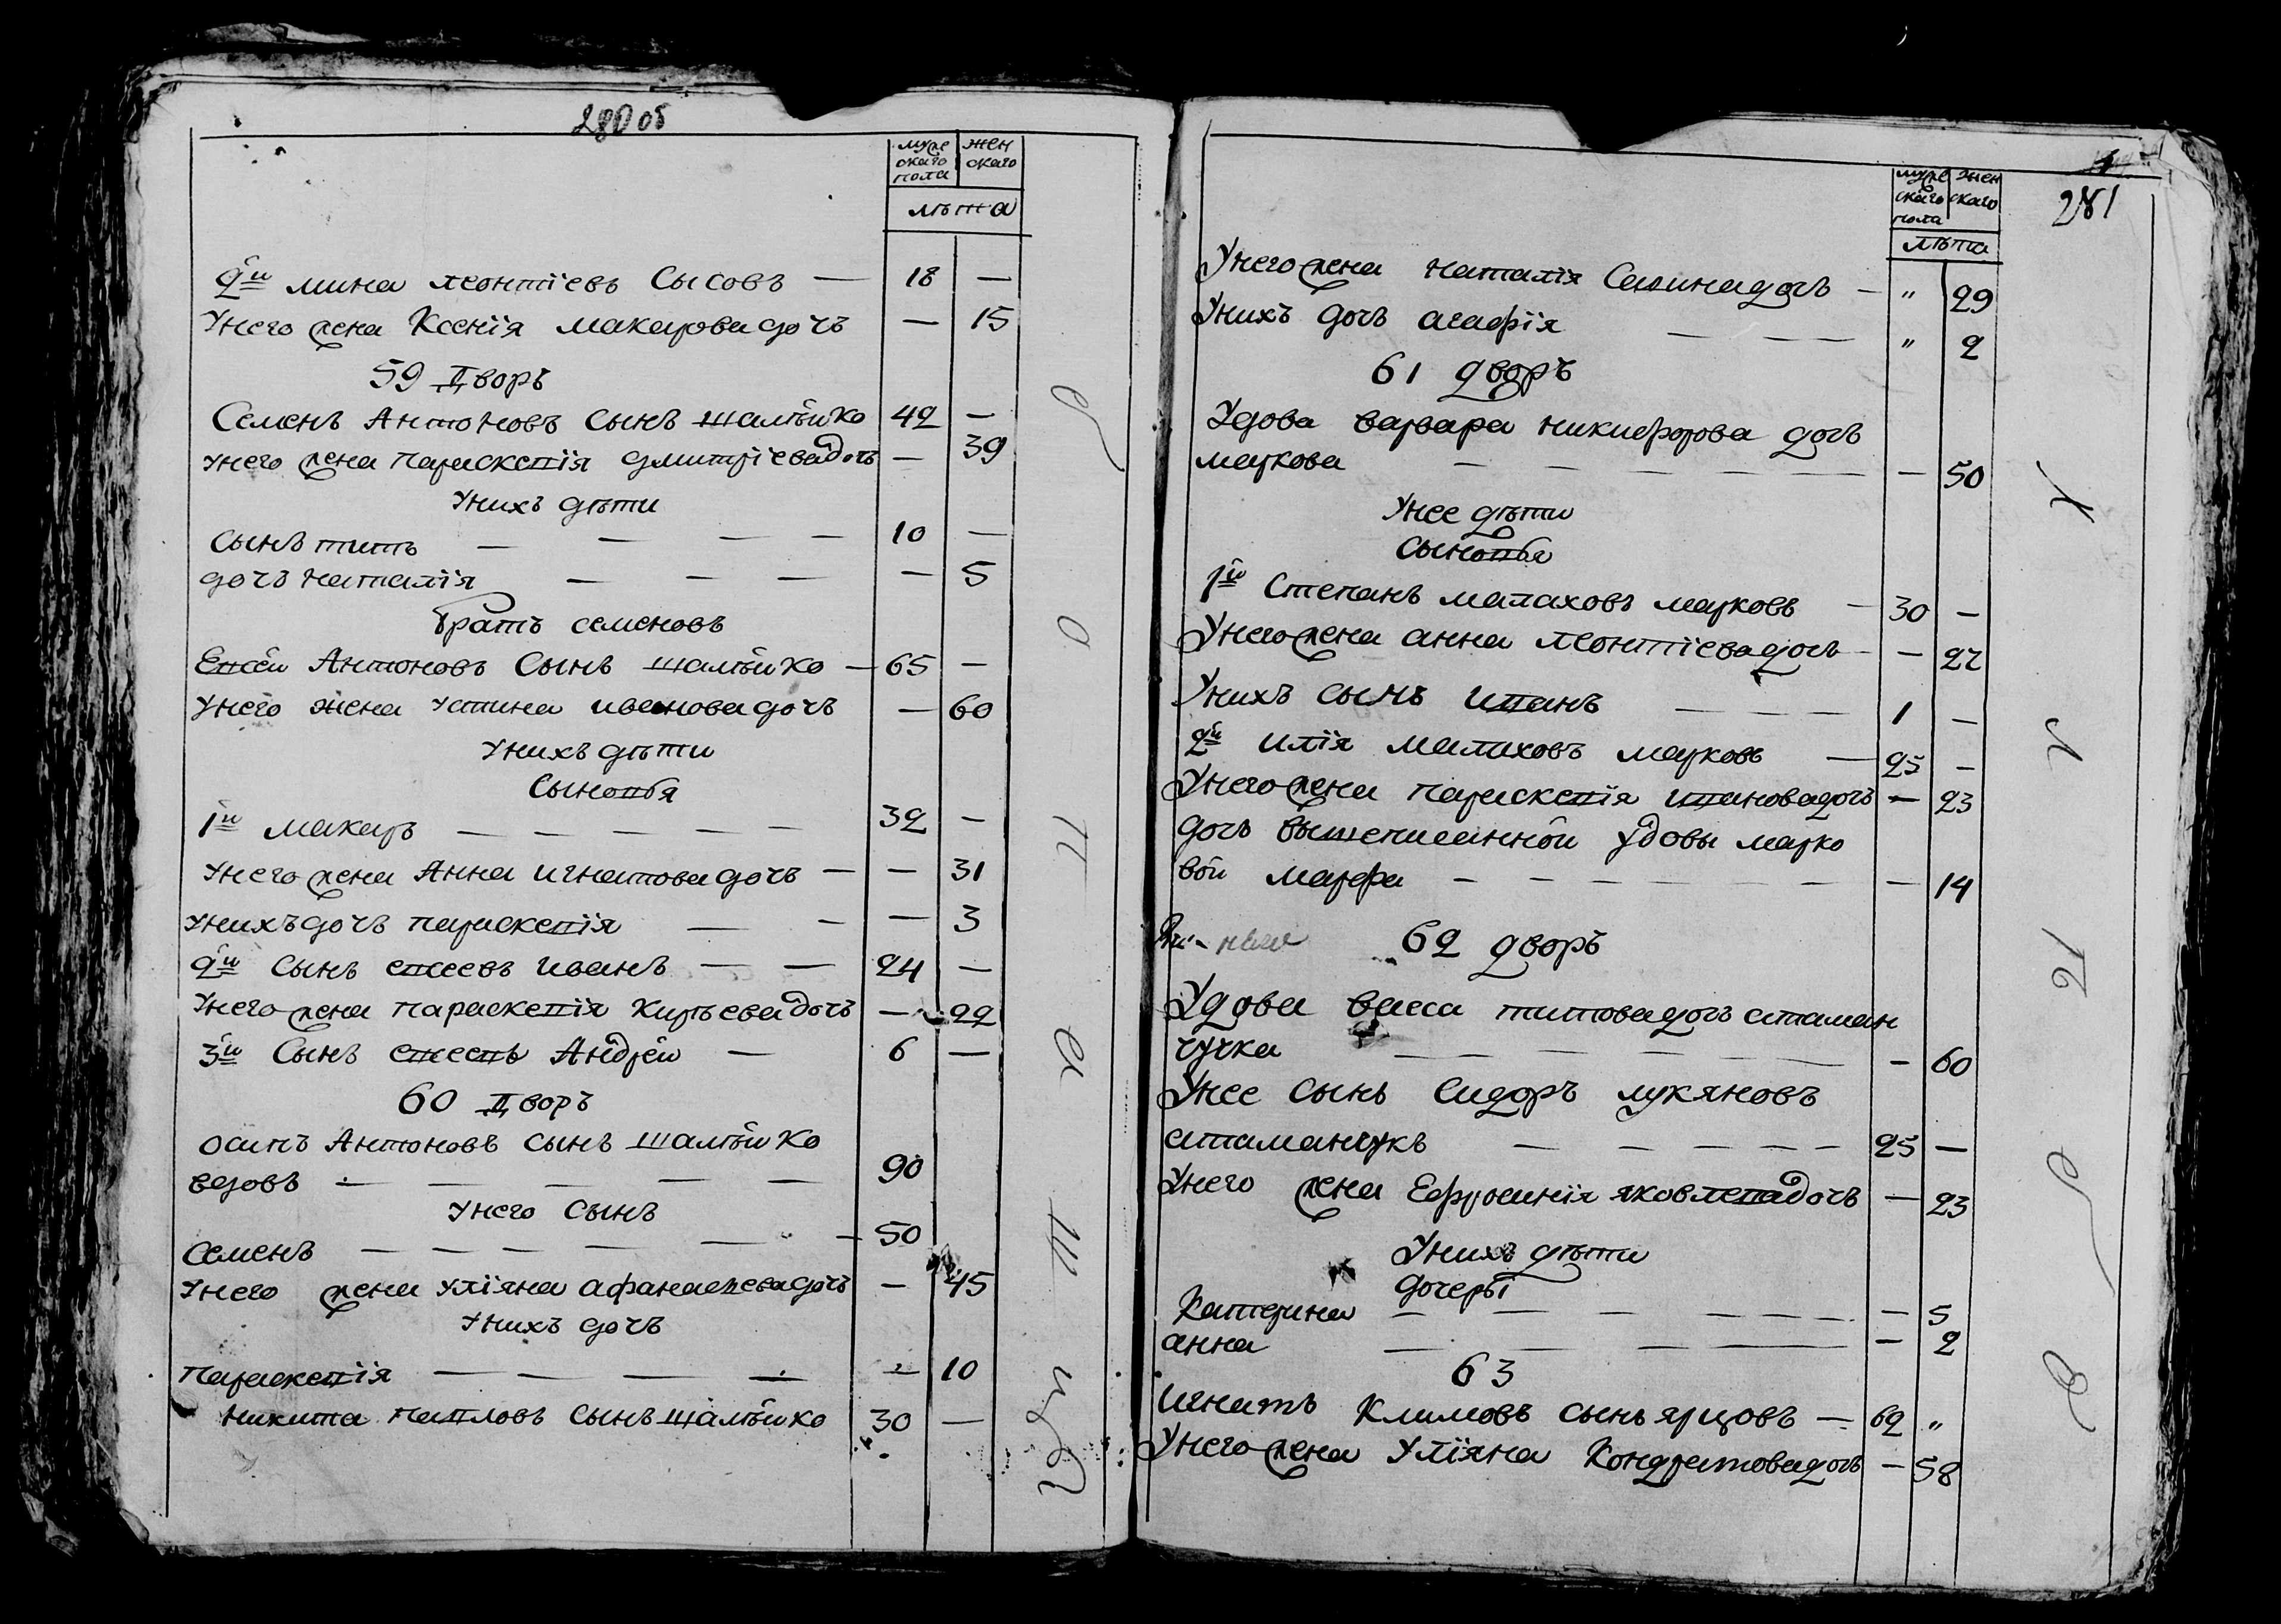 280 об
муже
скаго
пола
жен
скаго
лѣта
2й мина леонтіевъ Сысовъ — 18 —
Унего жена Ксенія макарова дочъ — 15
59 Дворъ
Семенъ Антоновъ сынъ шалѣйко 42 —
унего жена параскевія дмитріева дочъ — 39
Унихъ дѣти
сынъ титъ — — — — 10 —
дочъ наталія — — — — 5
братъ семеновъ
Евсей Антоновъ Сынъ шалѣйко — 65 —
Унего жена устина иванова дочъ — 60
Унихъ дѣти
Сыновья
1й макаръ — — — — — 32 —
унего жена Анна игнатова дочъ — — 31
унихъ дочъ параскевія — — — 3
2й Сынъ евсеевъ иванъ — — 24 —
Унего жена параскевія Кирѣева дочъ — 22
3й Сынъ евсеевъ Андрей — 6 —
60 Дворъ
осипъ Антоновъ сынъ шалѣйко
вдовъ — — — — — 90
Унего сынъ
Семенъ — — — — — — 50
Унего жена уліяна афанасиева дочъ — 45
Унихъ дочъ
параскевія — — — — — 10
никита павловъ сынъ шалѣйко 30 —
муже
скаго
пола
жен
скаго
лѣта
281
Унего жена наталія Савина дочъ — " 29
Унихъ дочъ агафія — — — " 2
61 дворъ
Удова варвара никифорова дочъ
маркова — — — — — — — 50
Унее дѣти
сыновья
1й Степанъ малаховъ марковъ — 30 —
Унего жена анна леонтіева дочъ — — 27
Унихъ сынъ иванъ — — — 1 —
2й илія малаховъ марковъ — 25 —
Унего жена параскевія иванова дочъ — 23
дочъ вышеписанной удовы марко
вой марфа — — — — — — — 14
62 дворъ
Удова васса титова дочъ атаман
чучка — — — — — — 60
Унее сынъ Сидоръ лукяновъ
атаманчукъ — — — — — 25 —
Унего жена Ефросинія яковлева дочъ — 23
Унихъ дѣти
дочеры
Катерина — — — — — — — 5
анна — — — — — 2
63
игнатъ Климовъ сынъ ярцовъ — 62 "
Унего жена Уліяна Кондратова дочъ — 58